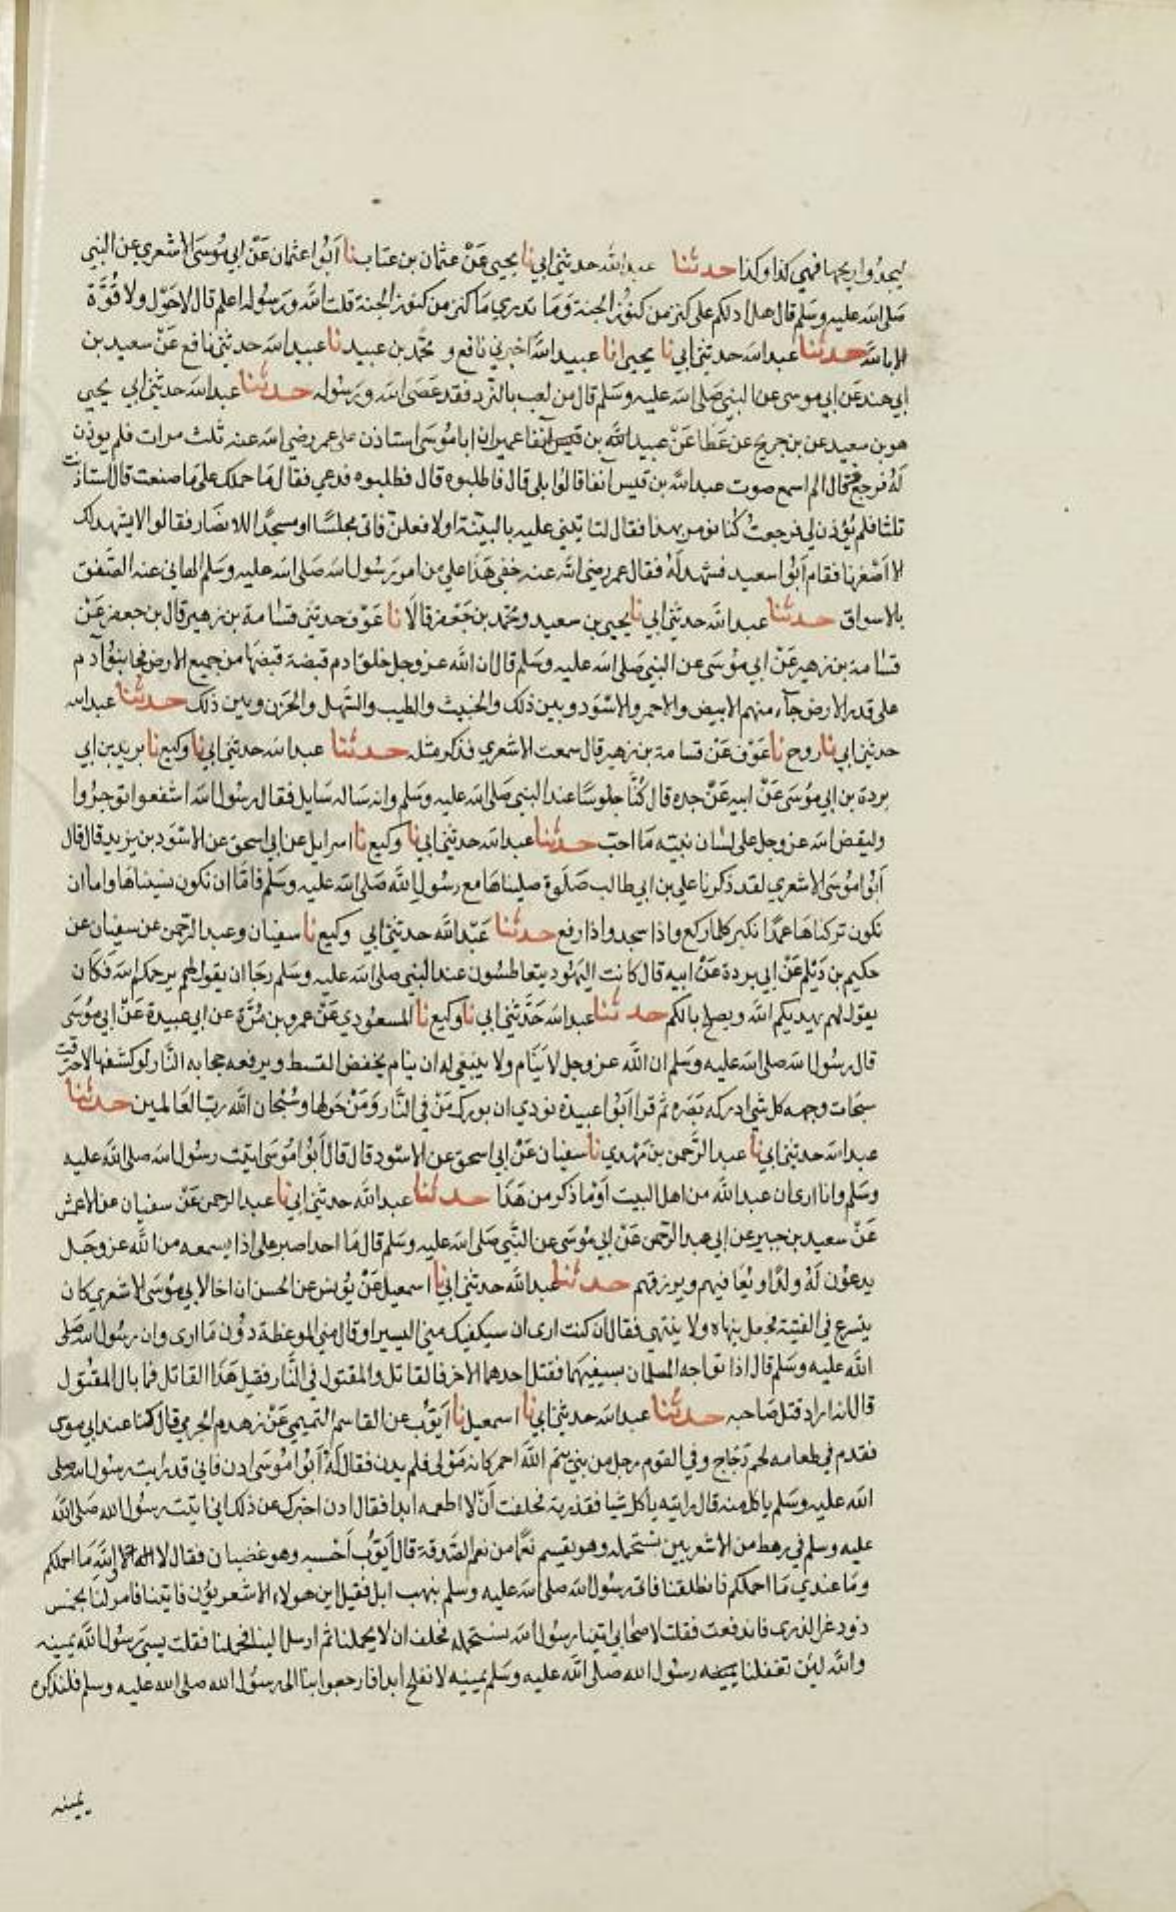 ليجدوا ريحها فهي كذا وكذا حدثنا عبد الله حدثني ابي نا يحيى عن عثمان بن عتاب نا ابو اعثمان عن ابي موسى الاشعري عن النبي
صلى الله عليه وسلم قال هل ادلكم على كنز من كنوز الجنة وما تدري ما كنز من كنوز الجنة قلت الله ورسوله اعلم قال لا حول ولا قوة
الا بالله حدثنا عبد الله حدثني ابي نا يحيى انا عبيد الله اخبرني نافع و محمد بن عبيد نا عبيد الله حدثني نافع عن سعيد بن
ابي هند عن ابي موسى عن النبي صلى الله عليه وسلم قال من لعب بالنرد فقد عصى الله ورسوله حدثنا عبد الله حدثني ابي يحيى
هو بن سعيد عن بن جريج عن عطا عن عبيد الله بن قيس آنفا عمير ان ابا موسى استاذن على عمر رضي الله عنه ثلث مرات فلم يوذن
له فرجع فقال الم اسمع صوت عبد الله بن قيس آنفا قالوا بلى قال فاطلبوه قال فطلبوه فدعي فقال ما حملك على ما صنعت قال استاذنت
ثلثا فلم يؤذن لي فرجعت كنا نومر بهذا فقال لتاتيني عليه بالبينة او لافعلن فاتى مجلسًا او مسجدًا للانصار فقالوا لا يشهد لك
الا اصغرنا فقام ابوا سعيد فشهد له فقال عمر رضي الله عنه خفي هذا علي من امر رسول الله صلى الله عليه وسلم الهاني عنه الصفق
بالاسواق حدثنا عبد الله حدثني ابي نا يحيى بن سعيد ومحمد بن جعفر قالا نا عوف حدثني قسامة بن زهير قال بن جعفر عن
قسامة بن زهير عن ابي موسى عن النبي صلى الله عليه وسلم قال ان الله عز وجل خلق ادم قبضة قبضها من جميع الارض فجا بنوا آدم
على قدر الارض جآء منهم الابيض والاحمر والاسود وبين ذلك والخبيث والطيب والسهل والحزن وبين ذلك حدثنا عبد الله
حدثني ابي نا روح نا عوف عن قسامة بن زهير قال سمعت الاشعري فذكر مثله حدثنا عبد الله حدثني ابي نا وكيع نا بريد بن ابي
بردة بن ابي موسى عن ابيه عن جده قال كنا جلوسًا عند النبي صلى الله عليه وسلم وانه ساله سايل فقال رسول الله اشفعوا توجروا
وليقض الله عز وجل على لسان نبيه ما احب حدثنا عبد الله حدثني ابي نا وكيع نا اسرايل عن ابي اسحق عن الاسود بن يزيد قال قال
ابوا موسى الاشعري لقد ذكرنا علي بن ابي طالب صلوة صليناها مع رسول الله صلى الله عليه وسلم فاما ان نكون نسيناها واما ان
نكون تركناها عمدًا نكبر كلما ركع واذا سجد واذا رفع حدثنا عبد الله حدثني ابي وكيع نا سفيان وعبد الرحمن عن سفيان عن
حكيم بن ديلم عن ابي بردة عن ابيه قال كانت اليهود يتعاطسون عند النبي صلى الله عليه وسلم رجا ان يقول لهم يرحمكم الله فكان
يقول لهم يهديكم الله ويصلح بالكم حدثنا عبد الله حدثني ابي نا وكيع نا المسعودي عن عمرو بن مرة عن ابي عبيدة عن ابي موسى
قال رسول الله صلى الله عليه وسلم ان الله عز وجل لا ينام ولا ينبغي له ان ينام يخفض القسط ويرفعه حجابه النار لو كشفها لاحرقت
سبحات وجهه كل شي ادركه بصره ثم قرا ابوا عبيدة نودي ان بورك من في النار ومن حولها وسبحان الله رب العالمين حدثنا
عبد الله حدثني ابي نا عبد الرحمن بن مهدي نا سفيان عن ابي اسحق عن الاسود قال قال ابوا موسى اتيت رسول الله صلى الله عليه
وسلم وانا ارى ان عبد الله من اهل البيت او ما ذكر من هذا حدثنا عبد الله حدثني ابي نا عبد الرحمن عن سفيان عن الاعمش
عن سعيد بن جبير عن ابي عبد الرحمن عن ابي موسى عن النبي صلى الله عليه وسلم قال ما احد اصبر على اذا يسمعه من الله عز وجل
يدعون له ولدًا ويعافيهم ويرزقهم حدثنا عبد الله حدثني ابي نا اسمعيل عن يونس عن الحسن ان اخا لابي موسى الاشعري كان
يتسرع في الفتنة فجعل ينهاه ولا ينتهي فقال ان كنت ارى ان سيكفيك مني اليسير او قال مني الموعظة دون ما ارى وان رسول الله صلى
الله عليه وسلم قال اذا تواجه المسلمان بسيفيهما فقتل احدهما الاخر فالقاتل والمقتول في النار فقيل هذا القاتل فما بال المقتول
قال انه اراد قتل صاحبه حدثنا عبد الله حدثني ابي نا اسمعيل نا ايوب عن القاسم التميمي عن زهدم الجرمي قال كنا عند ابي موسى
فقدم في طعامه لحم دجاج وفي القوم رجل من بني تيم الله احمر كانه مولى فلم يدن فقال له ابوا موسى ادن فاني قد رايت رسول الله صلى
الله عليه وسلم ياكل منه قال رايته ياكل شيا فقذرته فحلفت ان لا اطعمه ابدا فقال ادن اخبرك عن ذلك اني اتيت رسول الله صلى الله
عليه وسلم في رهط من الاشعريين نستحمله وهو يقسم نعمًا من نعم الصدقة قال ايوب احسبه وهو غضبان فقال لا والله ما احملكم
وما عندي ما احملكم فانطلقنا فاتى رسول الله صلى الله عليه وسلم بنهب ابل فقيل اين هولاء الاشعريون فاتينا فامر لنا بخمس
ذود غر الذرى فاندفعت فقلت لاصحابي اتينا رسول الله نستحمله فحلف ان لا يحملنا ثم ارسل الينا فحملنا فقلت نسي رسول الله يمينه
والله لين تغفلنا يمينه رسول الله صلى الله عليه وسلم يمينه لا نفلح ابدا ارجعوا بنا الى رسول الله صلى الله عليه وسلم فلنذكره
يمينه